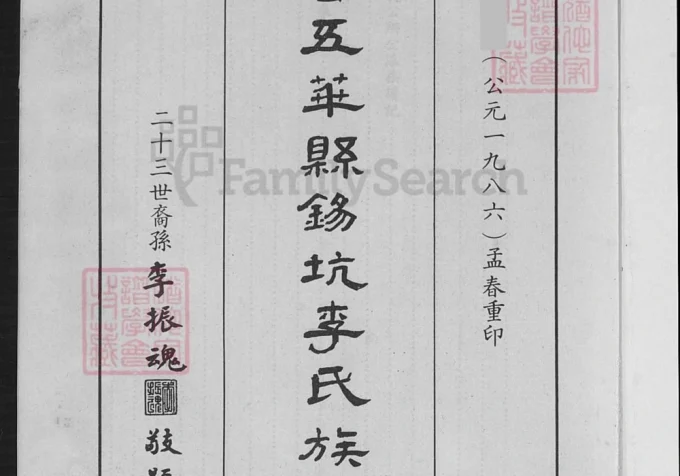 （公元一九八六）孟春重印
五華縣錫坑李氏族
二十三世裔孫李振魂敬
FamilySearch